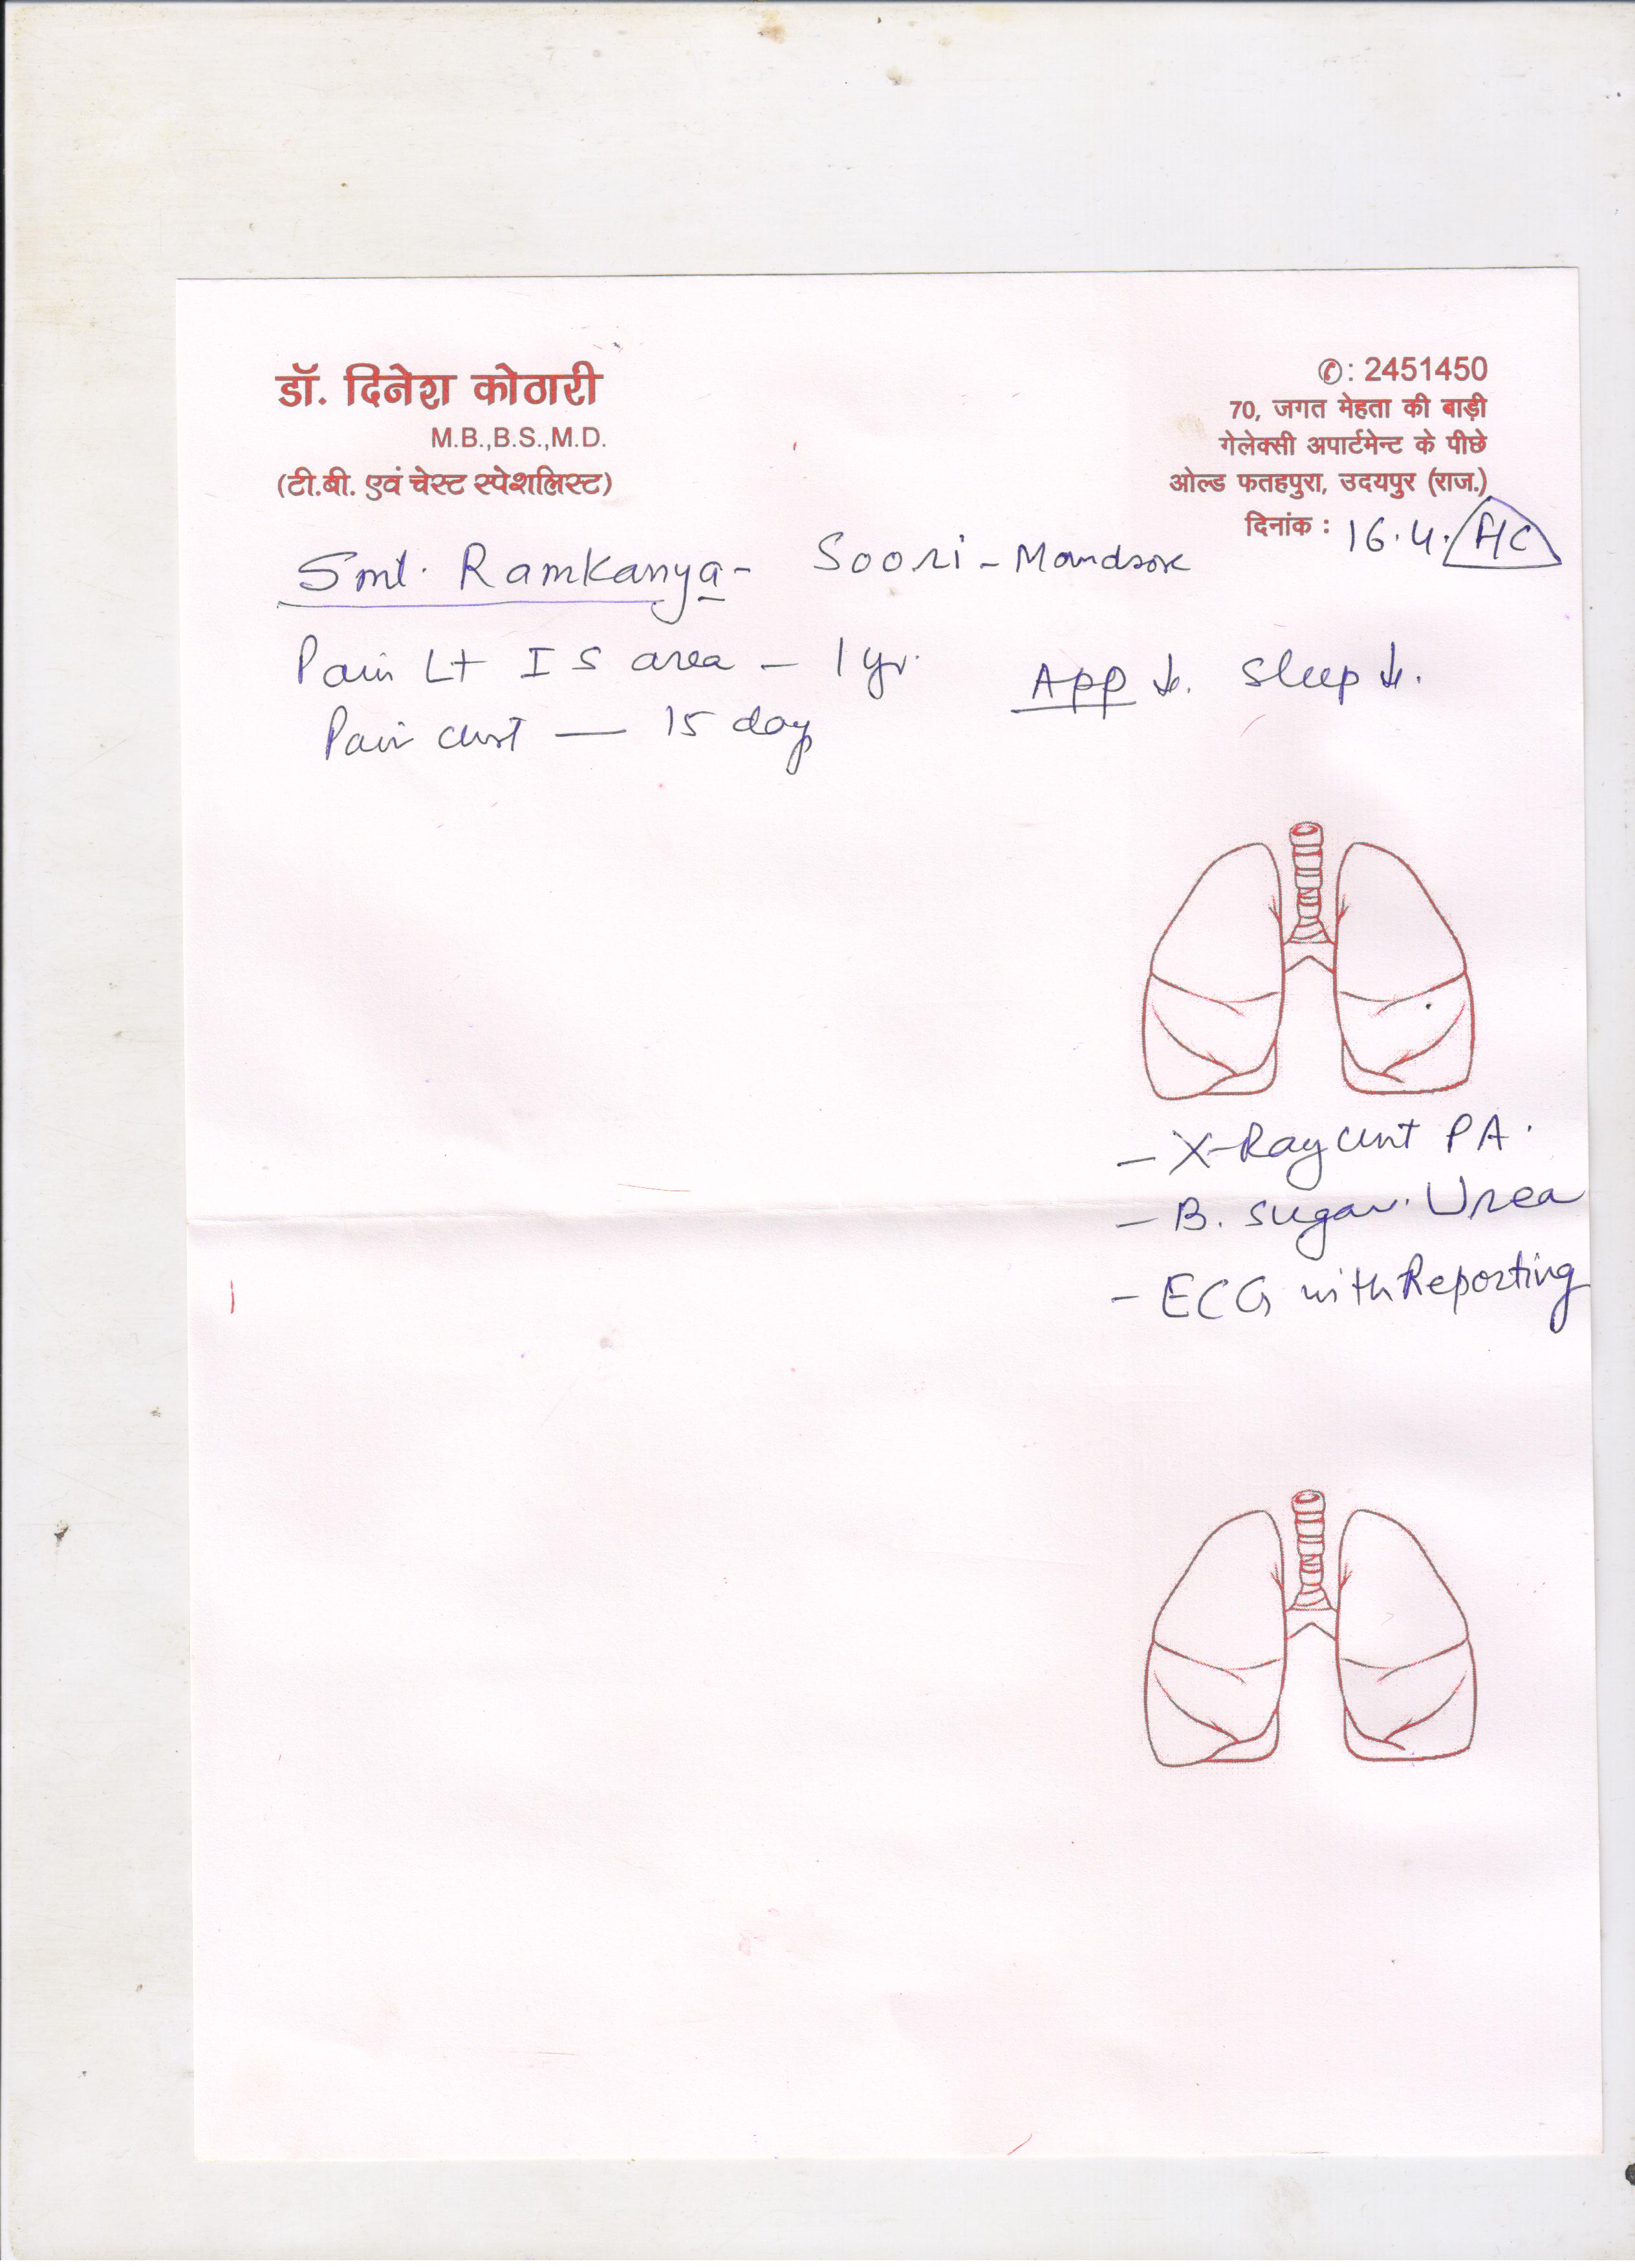 डॉ. दिनेश कोठारी
M.B.,B.S.,M.D.
(टी.बी. एवं चेस्ट स्पेशलिस्ट)
✆: 2451450
70, जगत मेहता की बाड़ी
गेलेक्सी अपार्टमेन्ट के पीछे
ओल्ड फतहपुरा, उदयपुर (राज.)
दिनांक : 16.4.
Smt. Ramkanya - Soori - Mandsor
Pain Lt I S area — 1 yr. App ↓. Sleep ↓.
Pain chest — 15 day
- X-Ray chest PA.
- B. Sugar. Urea
- ECG with Reporting